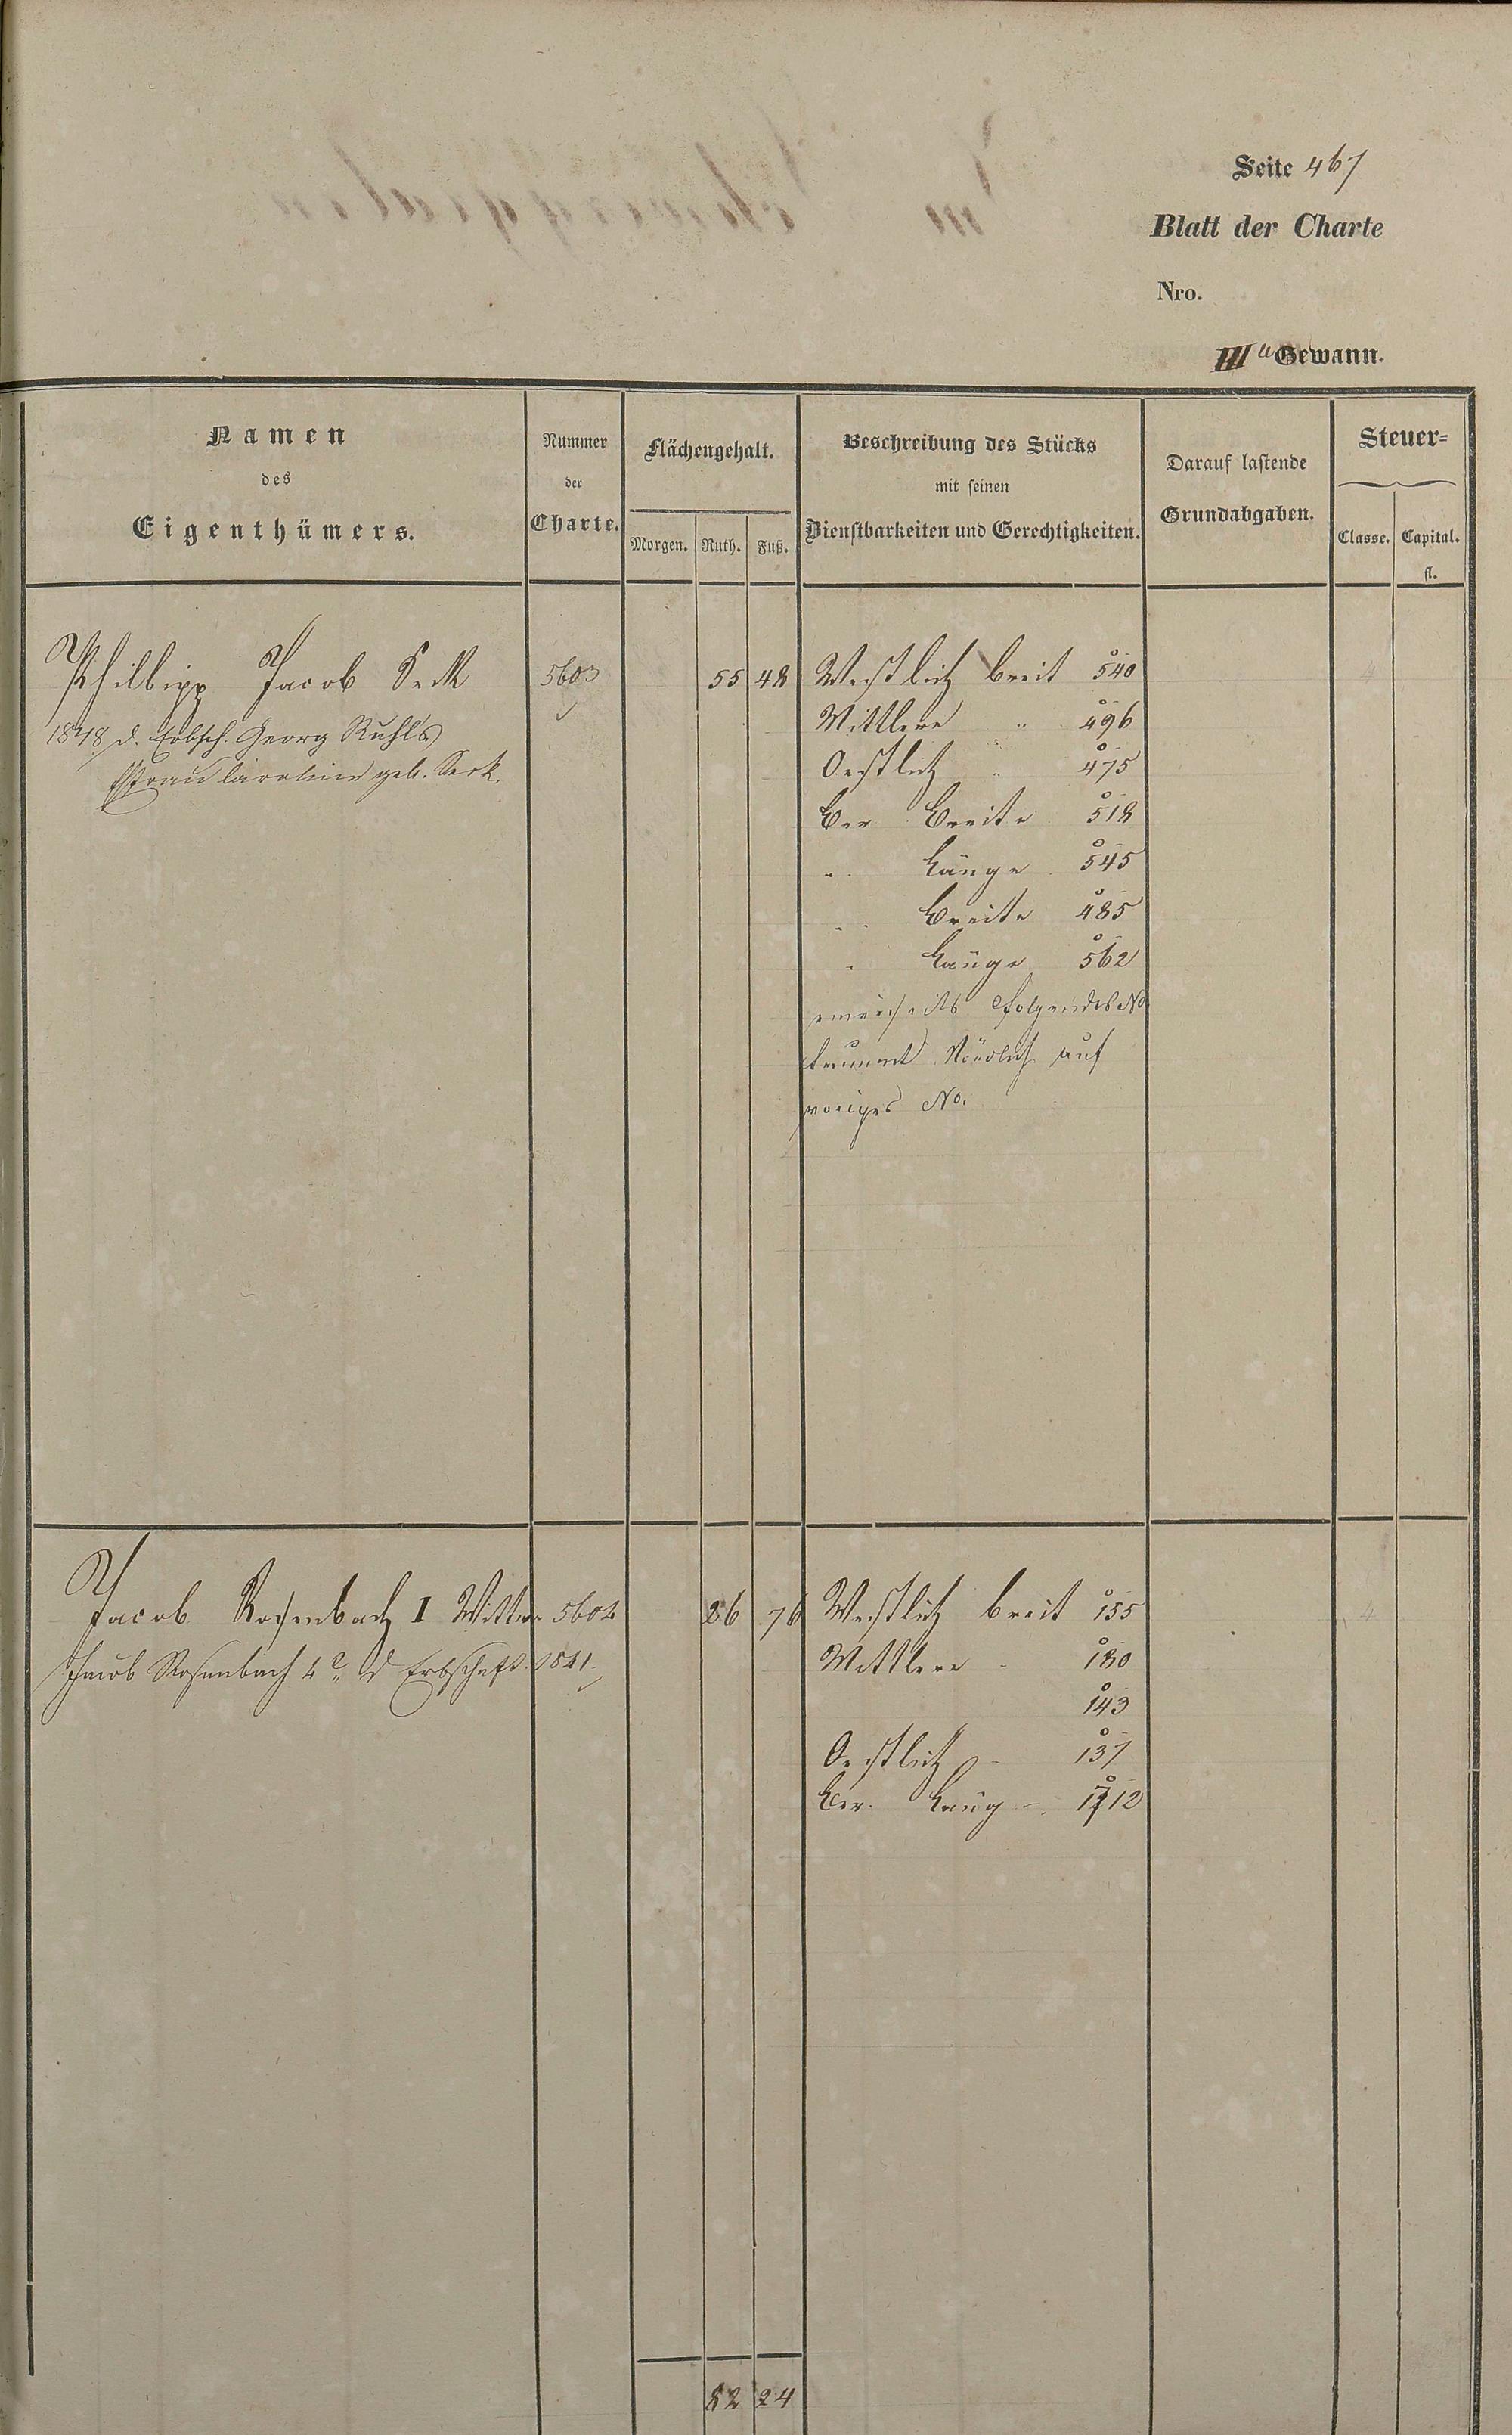 Seite 467
Blatt der Charte
Nro.
III Gewann.
Namen
des
Eigenthümers.
Nummer
der
Charte.
Flächengehalt.
Morgen. Ruth. Fuß.
Beschreibung des Stücks
mit seinen
Dienstbarkeiten und Gerechtigkeiten.
Darauf lastende
Grundabgaben.
Steuer=
Classe. Capital.
fl.
Philipp Jacob Seck 5603 55 48 Westlich breit 540
1848 d. Erbsch. Georg Ruhl's Mittlere " 496
Frau Caroline geb. Seck. Oestlich " 475
Ber Breite 518
" Länge 545
" Breite 485
" Länge 562
einerseits folgendes No
Nördlich auf
voriges No.
Jacob Rosenbach I Wittwe 5604 26 76 Westlich breit 155
Jacob Rosenbach 4r d Erbschaft 1841. Mittlere - 180
143
Oestlich - 137
Ber. Läng - 1712
82 24